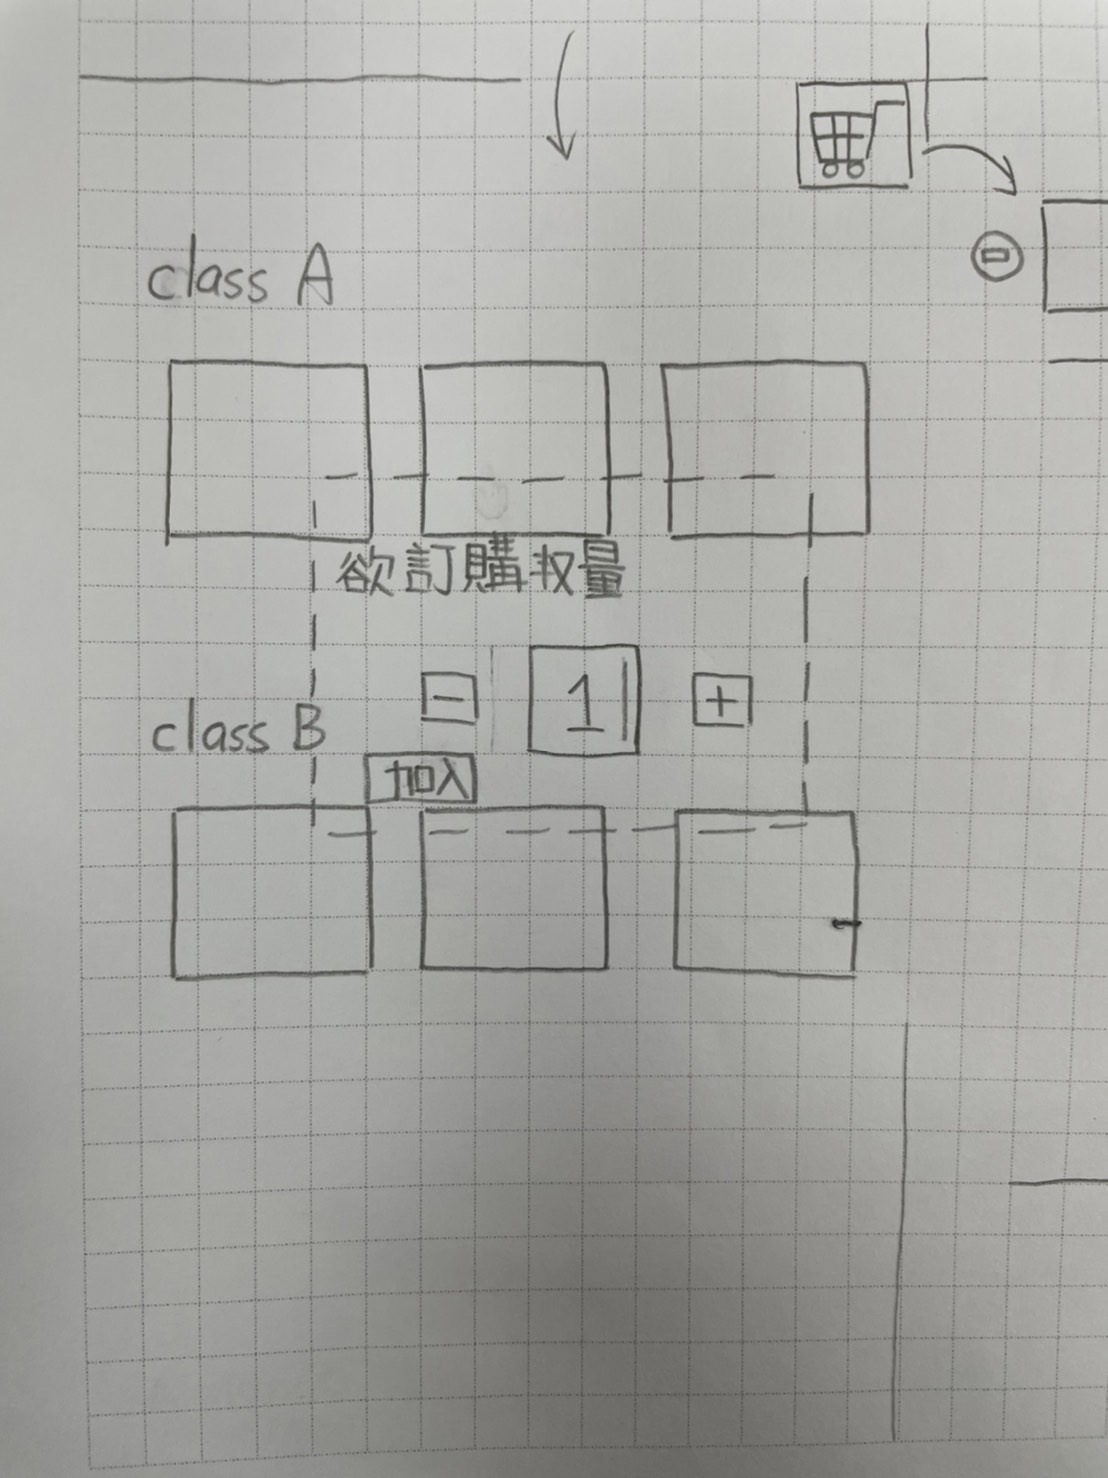 class A
欲訂購収量
- 1 +
class B
加入